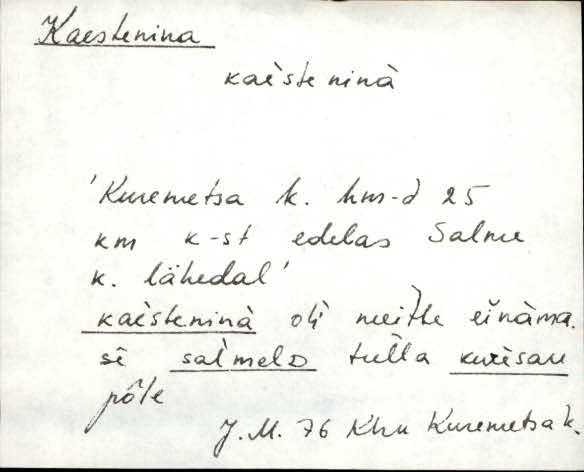 Kaestenina
kaèsteninà
'Kuremetsa k. hm-d 25
km k-st edelas Salme
k. lähedal'
kaèsteninà oĺi meitte einàma.
sè tulla
pôle
J. M. 76 Khu Kuremetsa k.